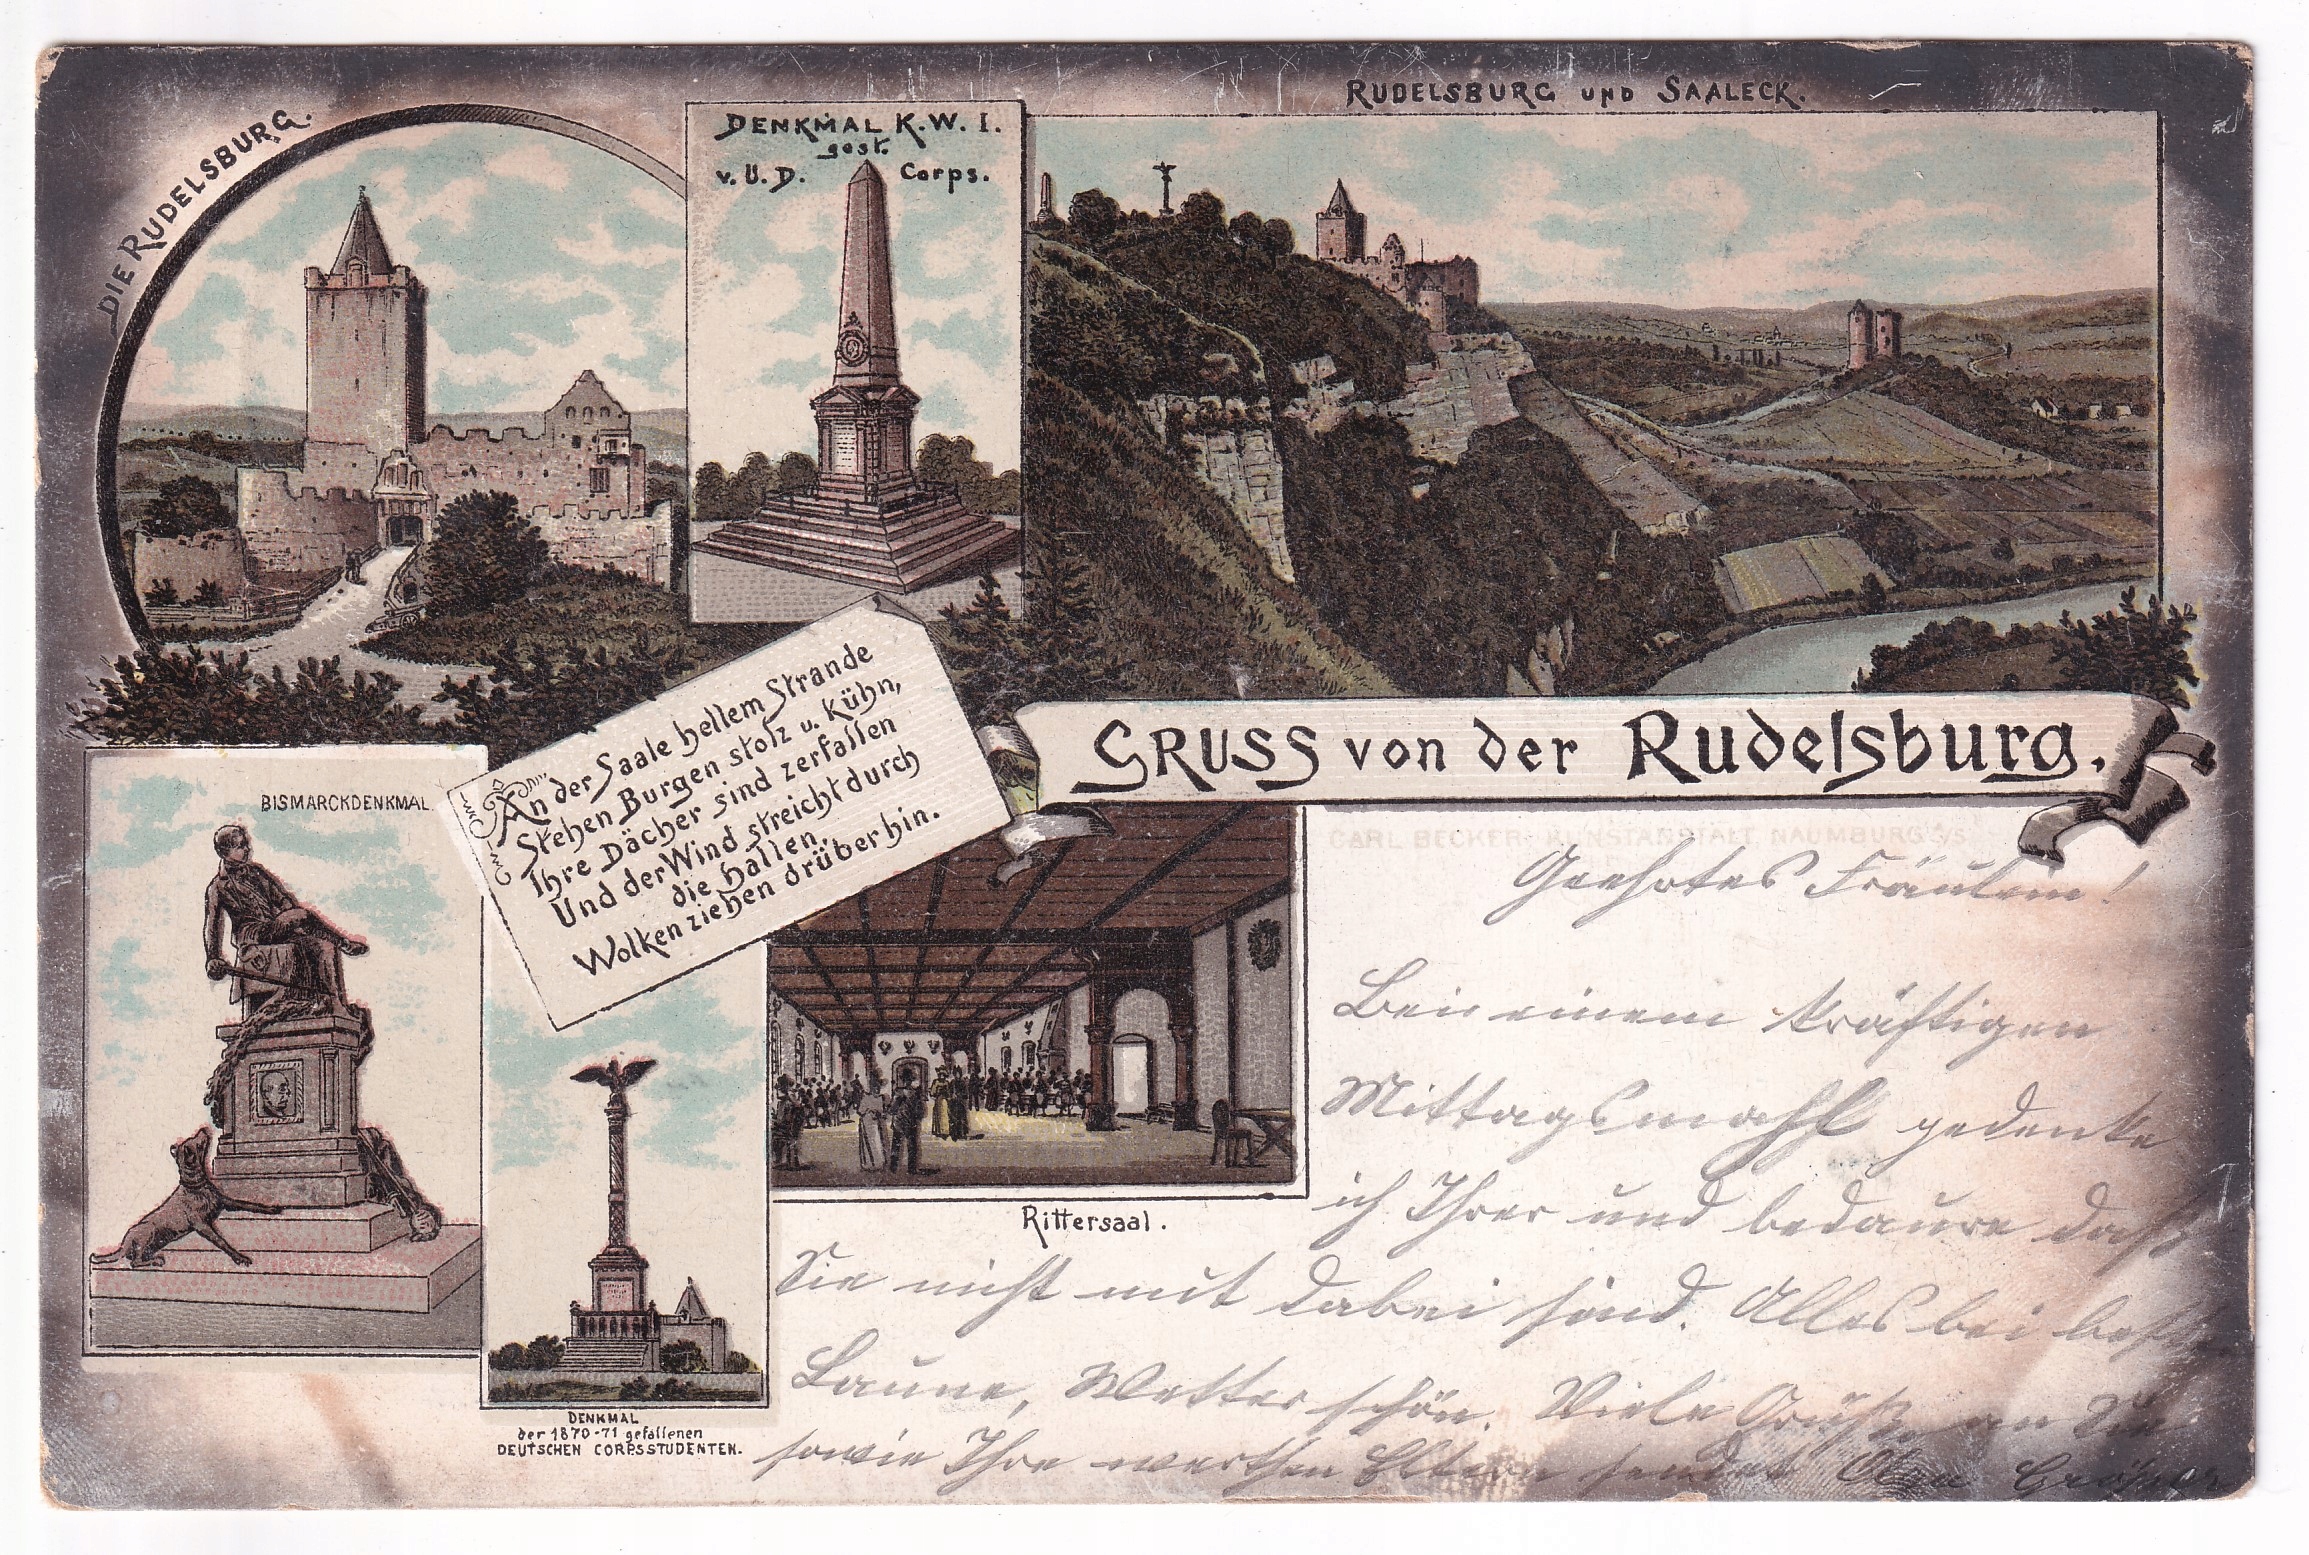 DIE RUDELSBURG.
DENKMAL K.W.I.
gest.
v. U. D. Corps.
RUDELSBURG UND SAALECK.
An der Saale hellem Strande
Stehen Burgen stolz u. kühn,
Ihre Dächer sind zerfallen
Und der Wind streicht durch
die Hallen,
Wolken ziehen drüber hin.
GRUSS von der Rudelsburg.
BISMARCKDENKMAL
CARL BECKER, KUNSTANSTALT NAUMBURG a/S
Rittersaal.
DENKMAL
der 1870-71 gefallenen
DEUTSCHEN CORPSSTUDENTEN.
Geehrtes Fräulein!
Bei einem kräftigen
Mittagsmahl gedenke
ich Ihrer und bedaure daß
Sie nicht mit dabei sind. Alles bei bester
Laune, Wetter schön. Viele Grüße an Sie
sowie Ihre werthen Eltern sendet